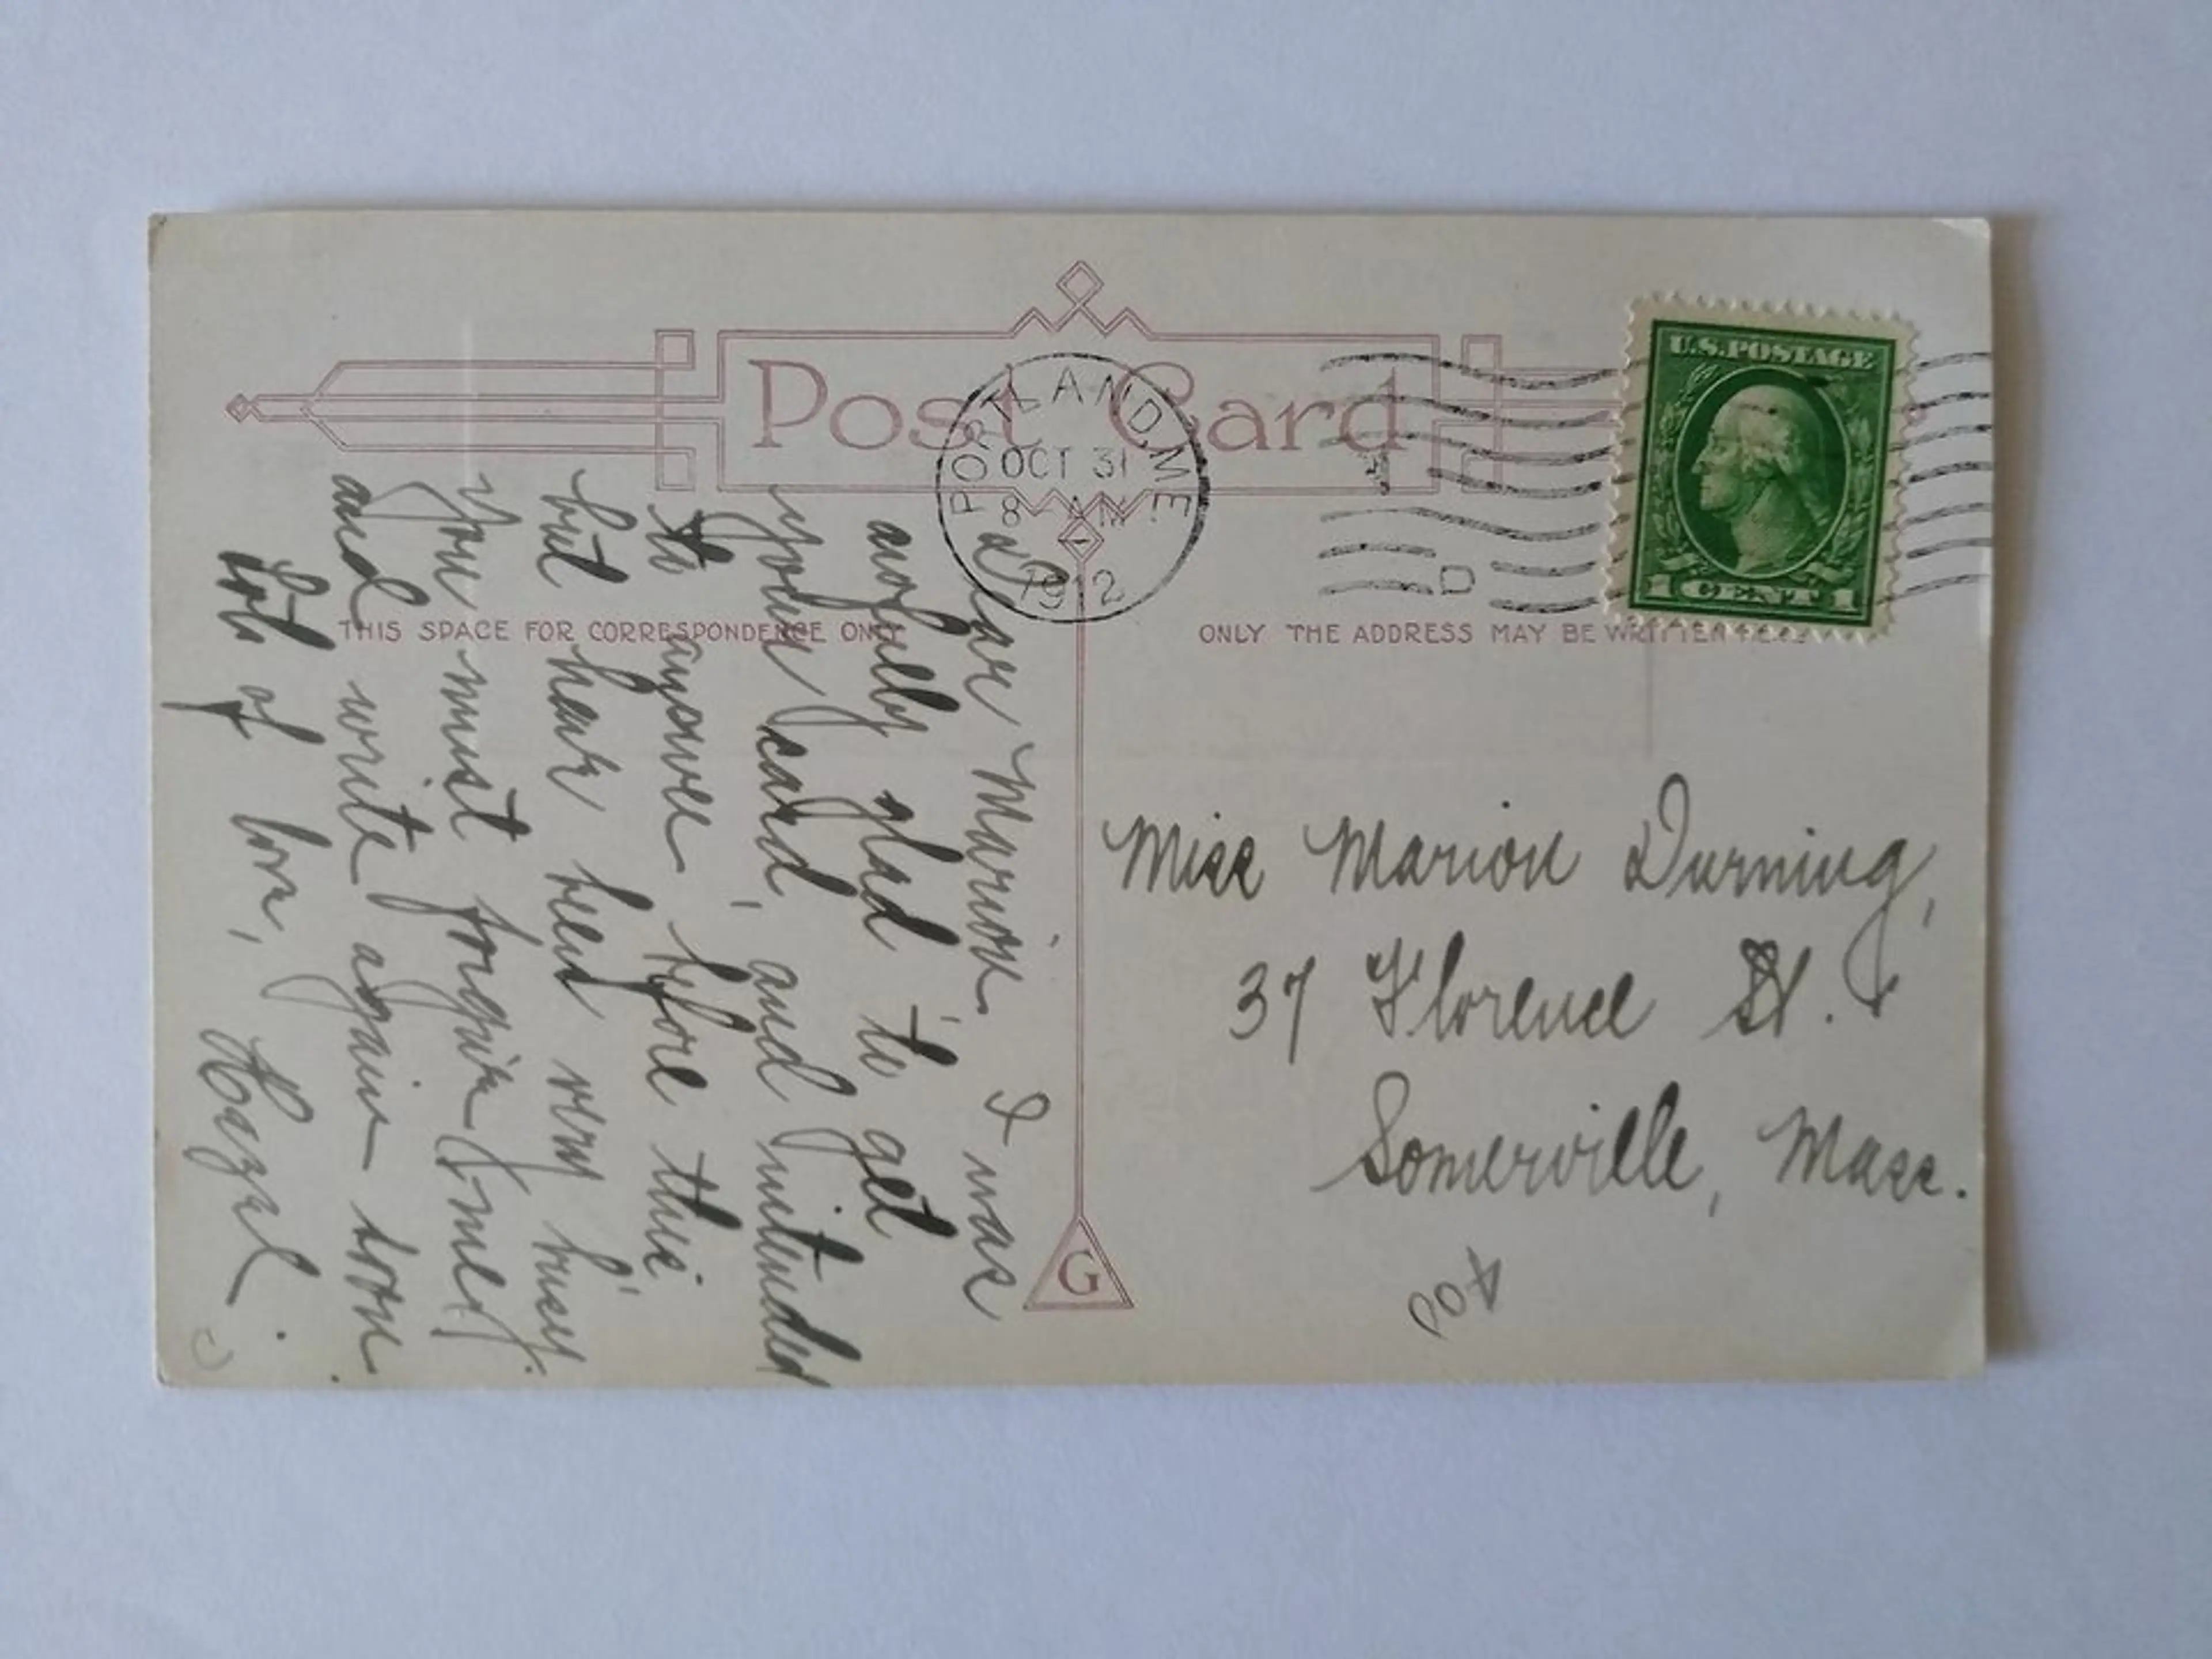 Post Card
PORTLAND, ME.
OCT 31
8 AM
1912
U.S. POSTAGE
1 CENT 1
THIS SPACE FOR CORRESPONDENCE ONLY
ONLY THE ADDRESS MAY BE WRITTEN HERE
Dear Marion, I was
awfully glad to get
your card, and intended
to answer before this
but hear been very busy
You must forgive me!
and write again soon.
Lots of love, Hazel.
Miss Marion Durning,
37 Florence St.
Somerville, Mass.
G
D